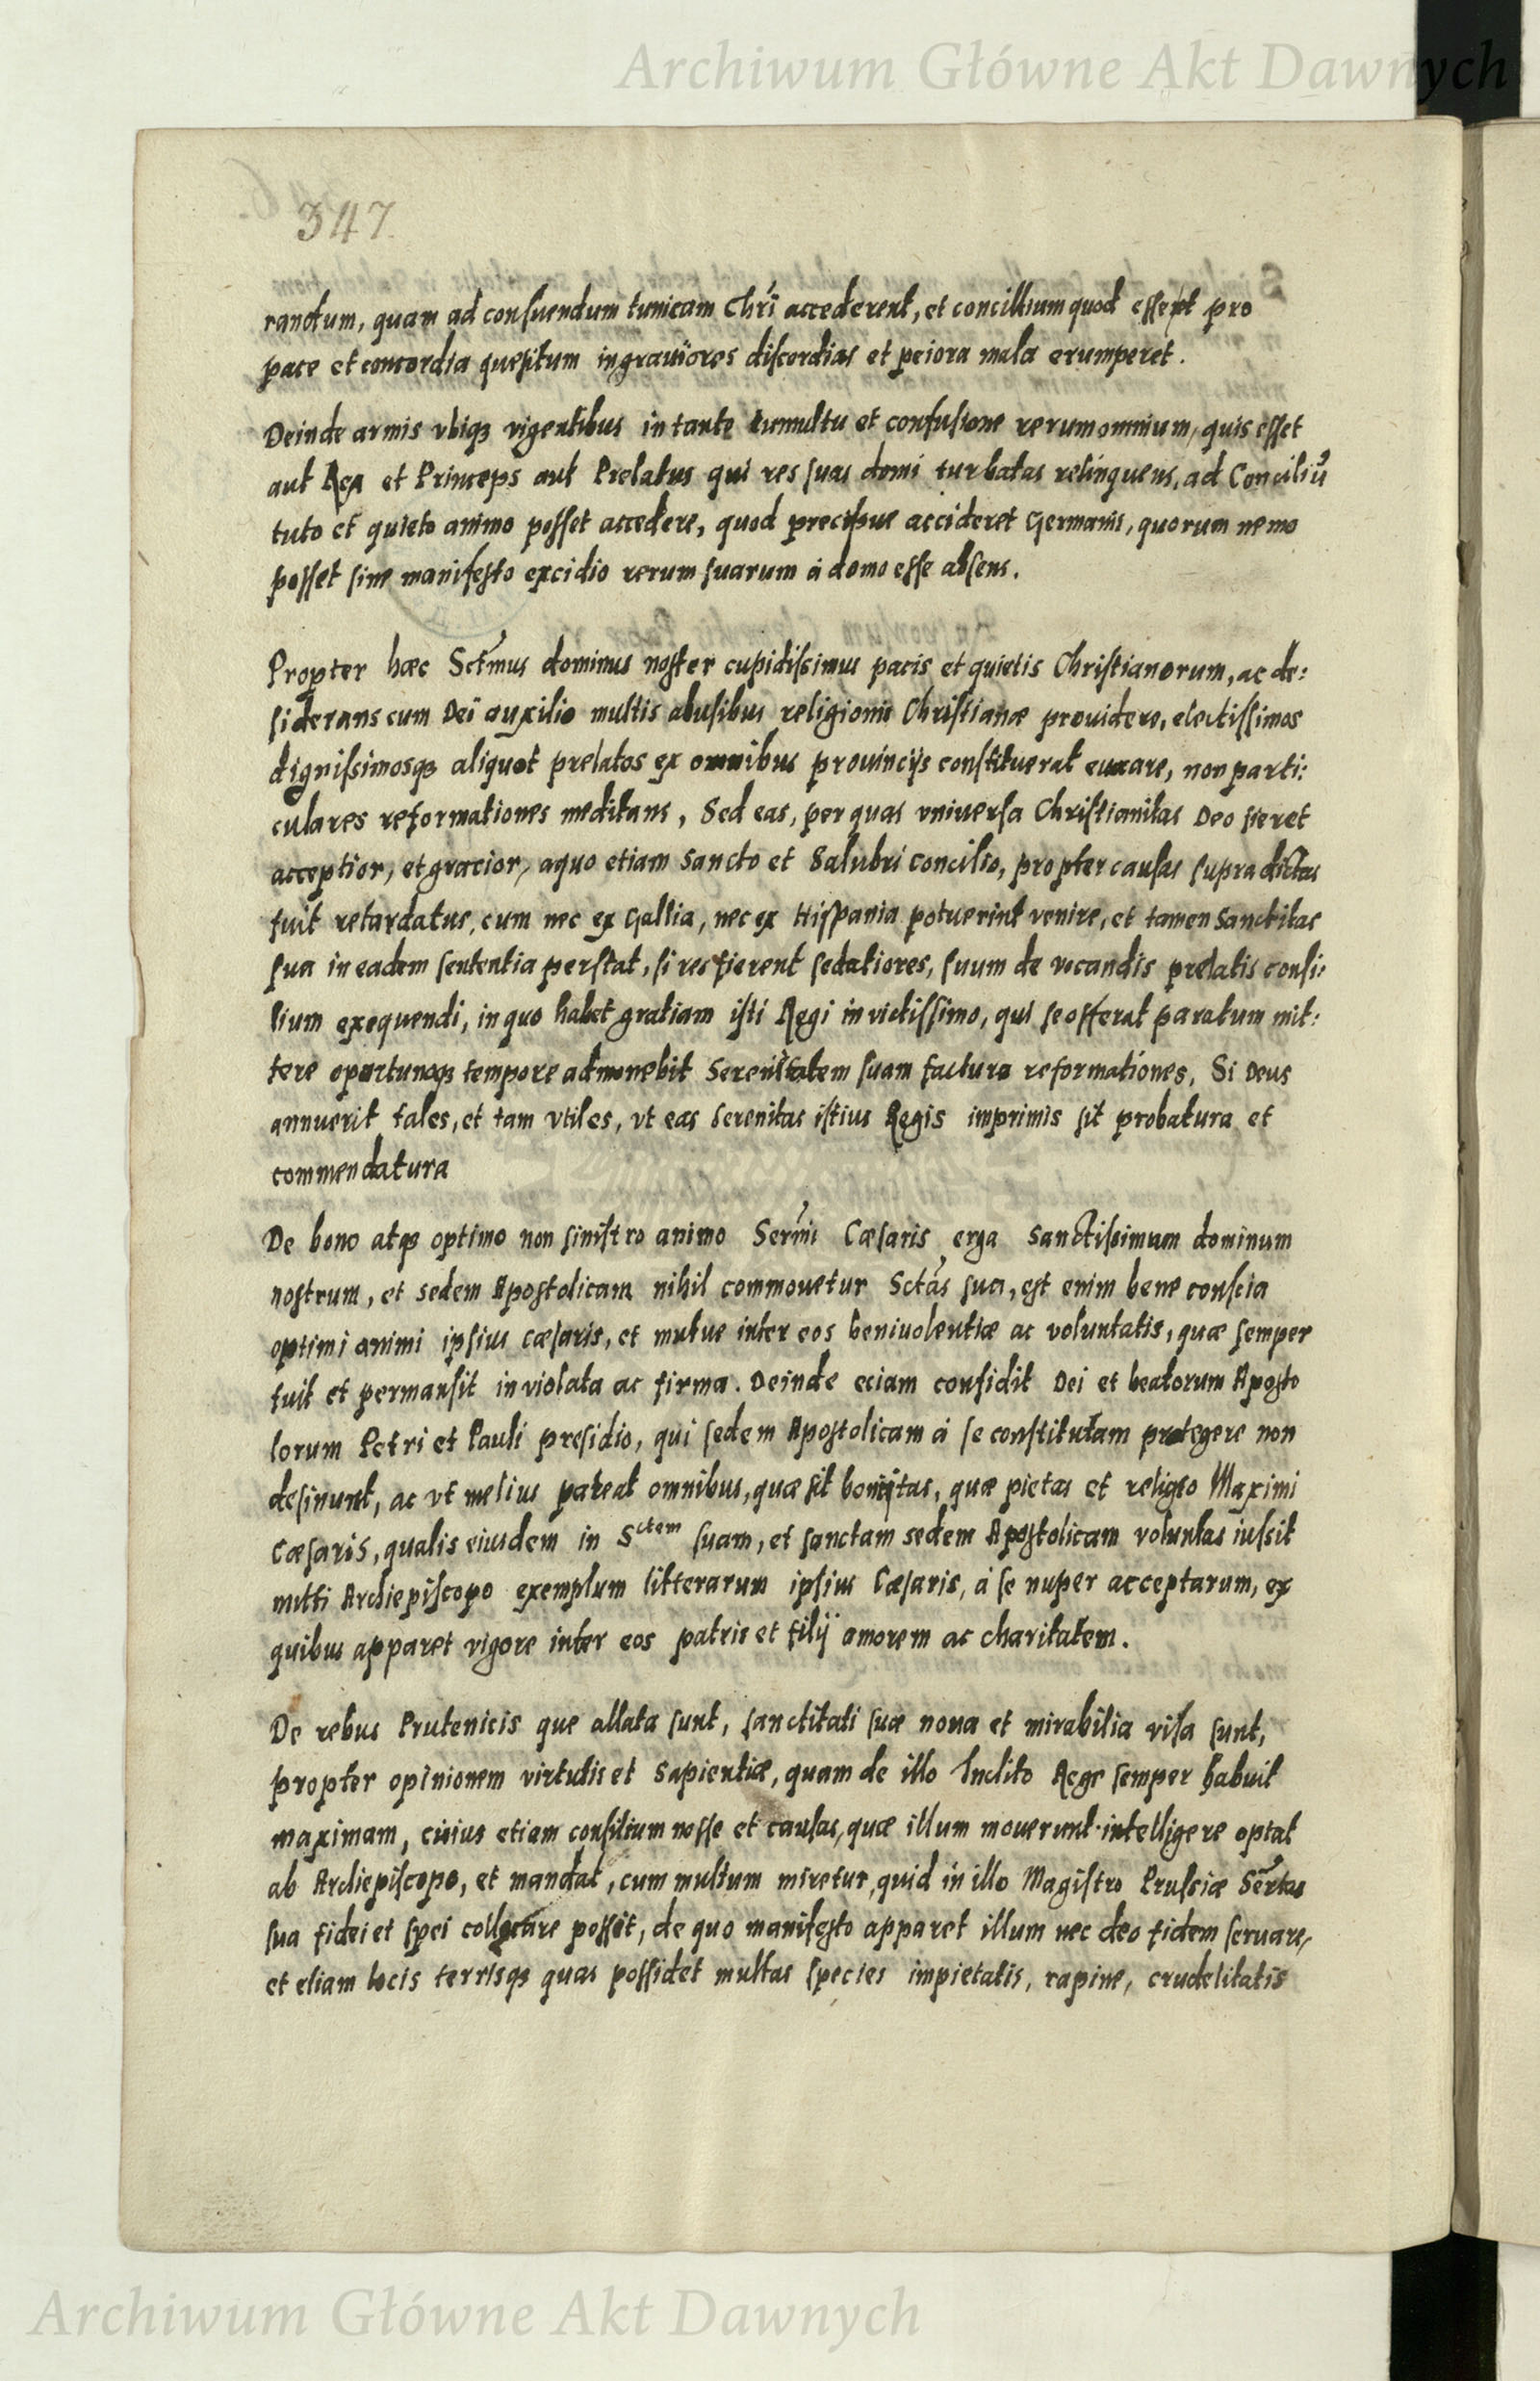 Archiwum Główne Akt Dawnych
347
randum, quam ad consuendum tunicam Chri accederent, et concilium quod essent pro
pace et concordia quesitum in grauiores discordias et peiora mala erumperet.
Deinde armis vbiq; vigentibus in tanto tumultu et confusione rerum omnium, quis esset
aut Rex et Princeps aut Prelatus qui res suas domi turbatas relinquens, ad Conciliu
tuto et quieto animo posset accedere, quod precipue accideret Germanis, quorum nemo
posset sine manifesto excidio rerum suarum à domo esse absens.
Propter hæc Sctmus dominus noster cupidissimus pacis et quietis Christianorum, ac de:
siderans cum Dei auxilio multis abusibus religionis Christianæ prouidere, electissimos
dignissimosq; aliquot prelatos ex omnibus prouincijs constituerat euocare, non parti:
culares reformationes meditans, Sed eas, per quas vniuersa Christianitas Deo fieret
acceptior, et gracior, a quo etiam sancto et Salubri concilio, propter causas supra dictas
fuit retardatus, cum nec ex Gallia, nec ex Hispania potuerint venire, et tamen Sanctitas
sua in eadem sententia perstat, si res fierent sedatiores, suum de vocandis prelatis consi:
lium exequendi, in quo habet gratiam isti Regi inuictissimo, qui se offerat paratum mit:
tere oportunoq; tempore admonebit Serenitatem suam factura reformationes, Si Deus
annuerit tales, et tam vtiles, vt eas Serenitas istius Regis imprimis sit probatura et
commendatura
De bono atq; optimo non sinistro animo Sermi Cæsaris erga Sanctissimum dominum
nostrum, et sedem Apostolicam nihil commouetur Sctas sua, est enim bene conscia
optimi animi ipsius Cæsaris, et mutue inter eos beniuolentiæ ac voluntatis, quæ semper
fuit et permansit inviolata ac firma. Deinde eciam confidit Dei et beatorum Aposto
lorum Petri et Pauli presidio, qui sedem Apostolicam à se constitutam protegere non
desinunt, ac vt melius pateat omnibus, quæ sit bonitas, quæ pietas et religio Maximi
Cæsaris, qualis eiusdem in Sctem suam, et sanctam sedem Apostolicam voluntas iussit
mitti Archiepiscopo exemplum litterarum ipsius Cæsaris, à se nuper acceptarum, ex
quibus apparet vigore inter eos patris et filij amorem ac charitatem.
De rebus Prutenicis que allata sunt, sanctitati suæ noua et mirabilia visa sunt,
propter opinionem virtutis et Sapientiæ, quam de illo Inclito Rege semper habuit
maximam, cuius etiam consilium nosse et causas, quæ illum mouerunt intelligere optat
ab Archiepiscopo, et mandat, cum multum miretur, quid in illo Magistro Prussiæ Sertas
sua fidei et spei collocare possit, de quo manifesto apparet illum nec deo fidem seruare,
et etiam locis terrisq; quas possidet multas species impietatis, rapine, crudelitatis
Archiwum Główne Akt Dawnych